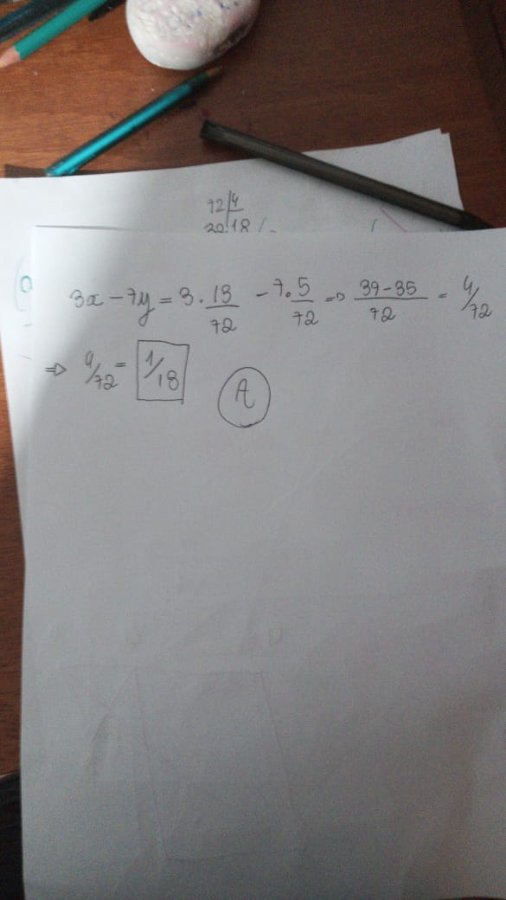 72 4
3x - 7y = 3 . 13/72 - 7 . 5/72 => 39-35/72 = 4/72
=> 4/72 = 1/18 A